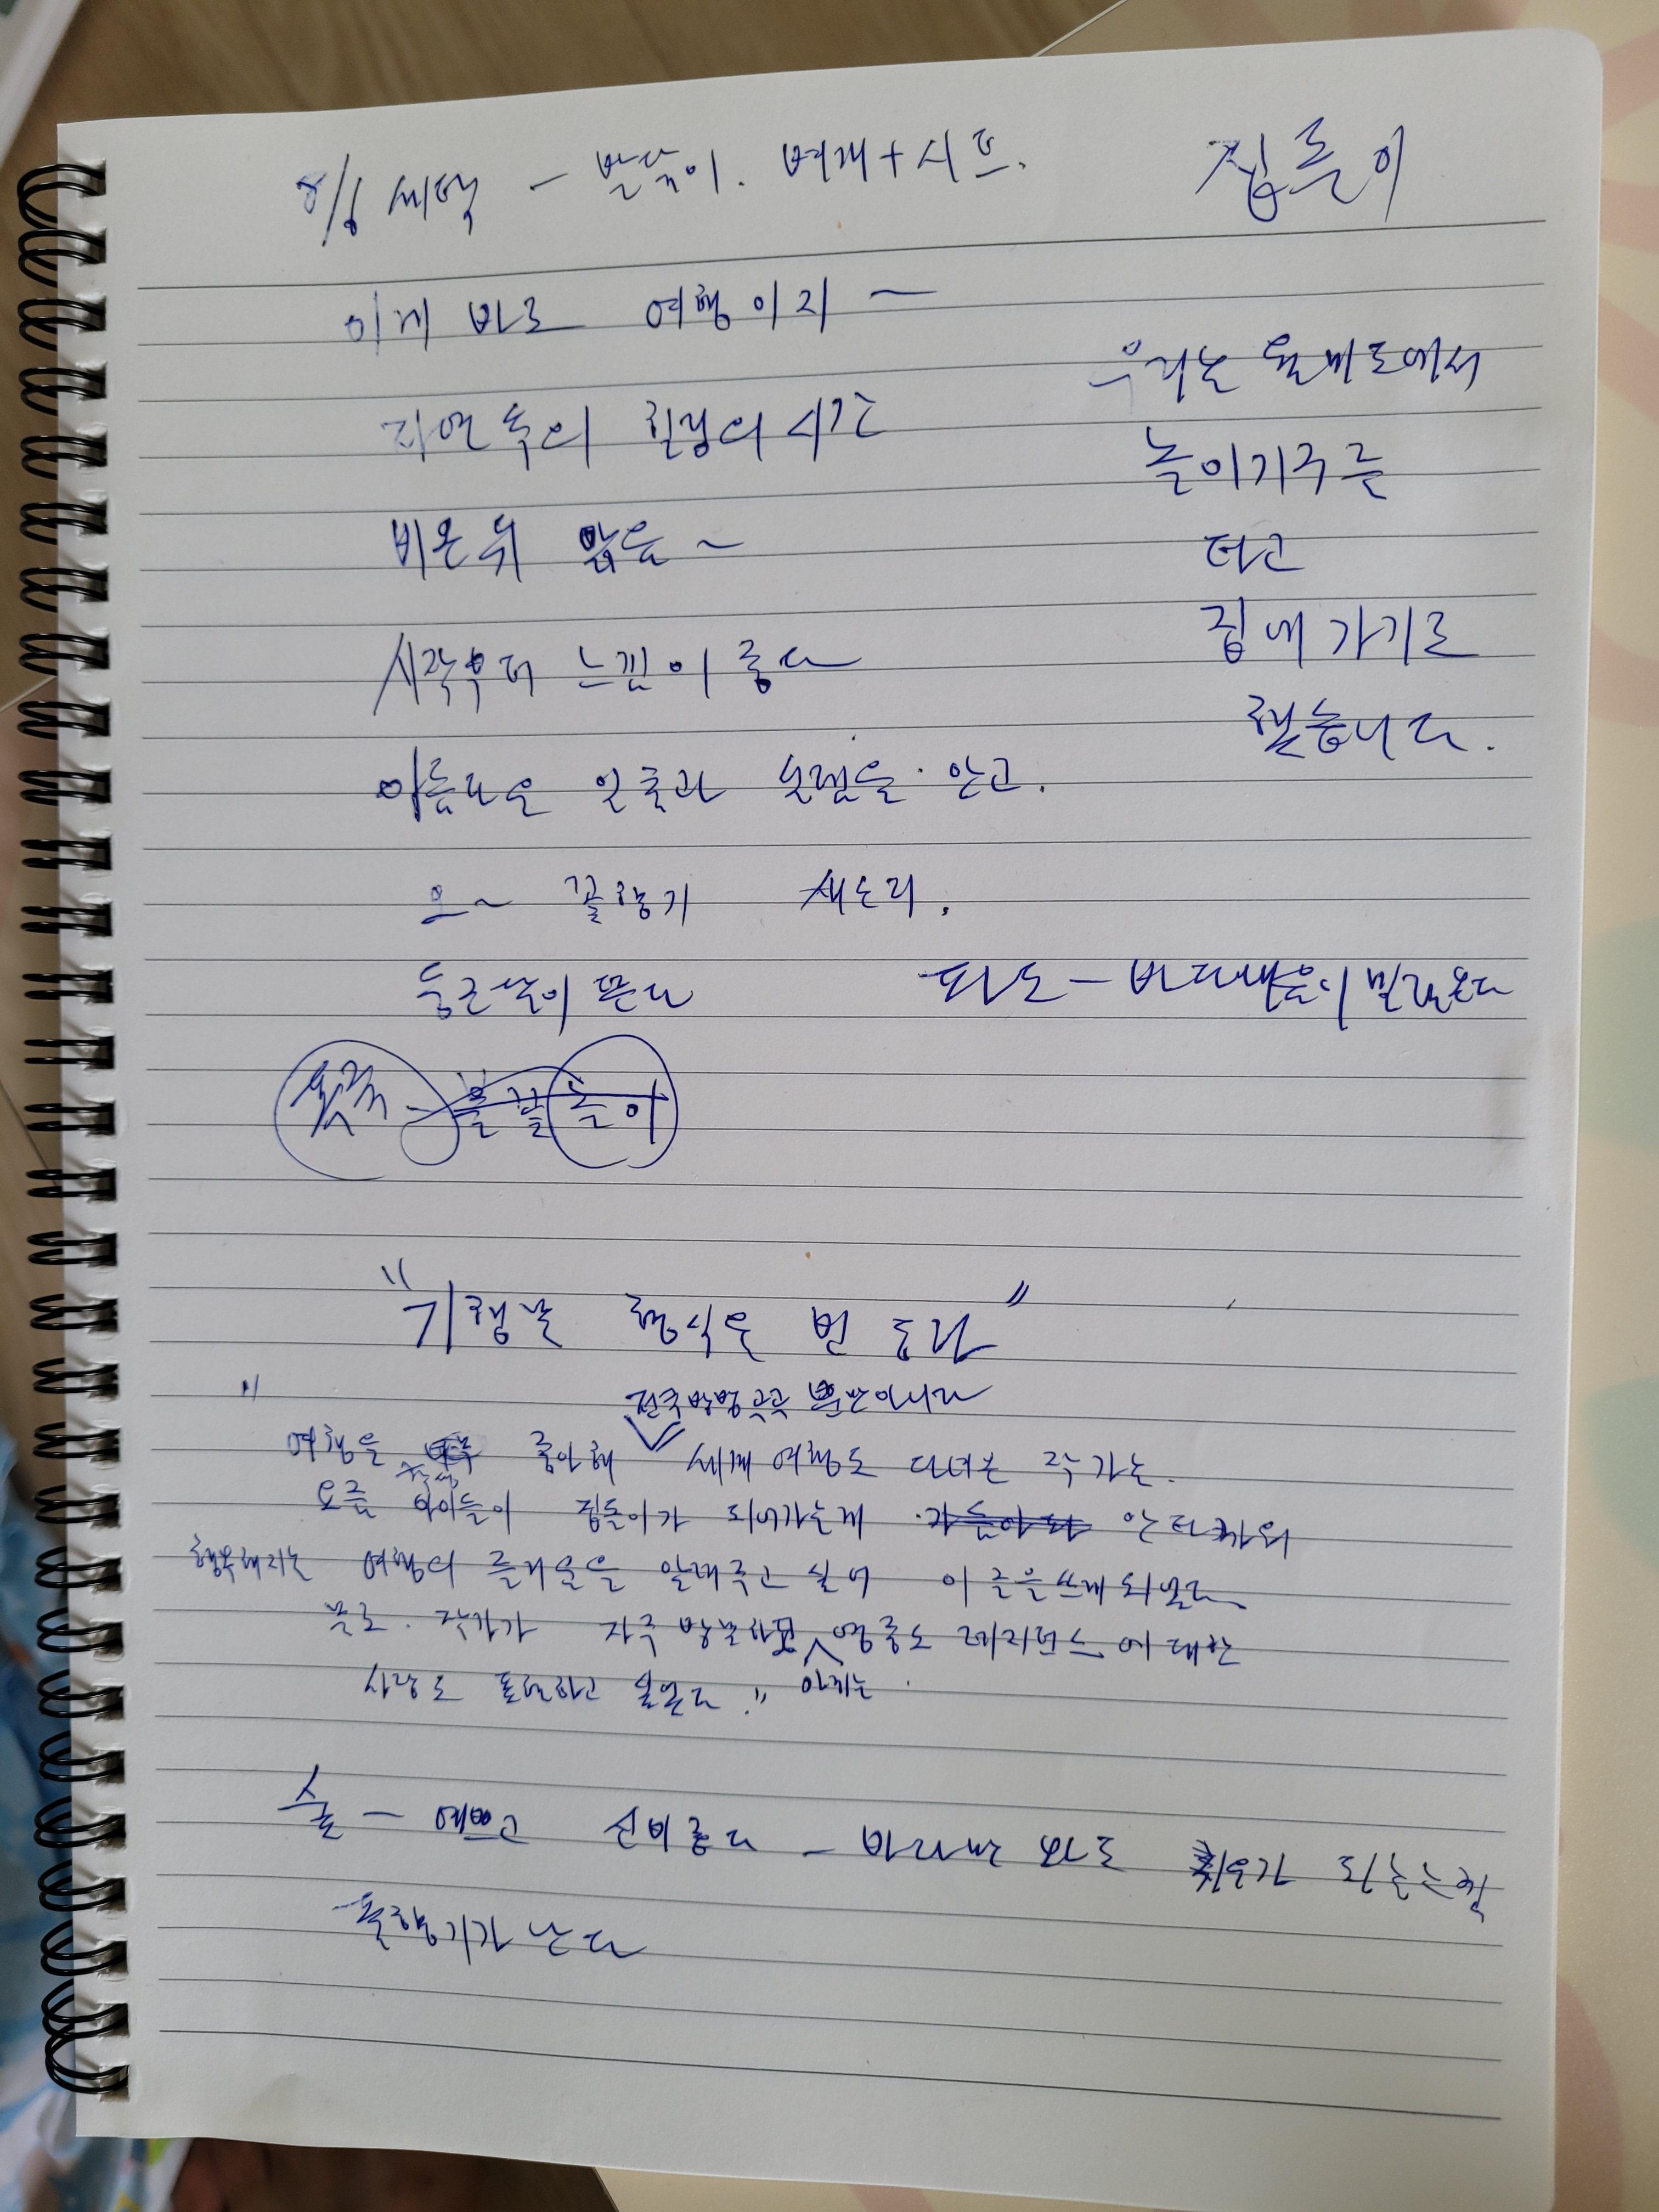 8/6 세탁 - 발닦이. 벼개+시트.
집돌이
이게 바로 여행이지 ~
자연 속의 힐링의 시간
비온 뒤 맑음 ~
시작부터 느낌이 좋다
아름다운 일출과 설렘을 안고.
오~ 꼴랑기 새소리.
둥근 달이 뜬다
우리는 월미도에서
놀이기구를
타고
집에 가기로
했습니다.
파도 - 바다내음이 밀려온다
놀이
"기행문 형식을 빈
전국방방곡곡 뿐만아니라
여행을 좋아해 세계 여행도 다녀본 작가는.
요즘 아이들이 집돌이가 되어가는게 안타까워
행복해지는 여행의 즐거움을 알려주고 싶어 이 글을 쓰게 되었다
또 작가가 자주 방문하며 영종도 레지던스에 대한
아끼는
사랑도 표현하고 싶었다."
술 - 예쁘고 신비롭다 - 바라만 봐도 치유가 되는 느낌
솔향기가 난다